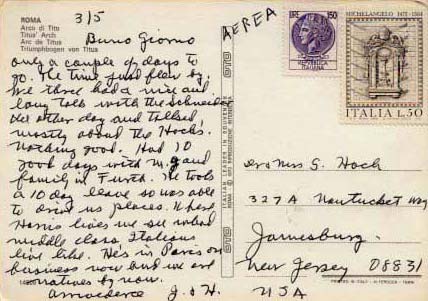 ROMA
Arco di Tito
Titus' Arch
Arc de Titus
Triumphbogen von Titus
3/5
Buno Giorno
only a couple of days to
go. The time just flew by.
We three had a nice and
long talk with the schneider
the other day and talked
mostly about the Hochs.
Nothing good. Had 10
good days with M. and
family in Furth. He took
a 10 day leave so was able
to drive us places. Where
Harris lives we see what
middle class, Italians
live like. He's in Paris on
business now and we are
natives by now.
Arrivederce J. & H.
AEREA
LIRE 150
ITALIA
MICHELANGELO 1475-1564
ITALIA L.50
OTO
ITALIAN LEADER IN SOUVENIRS
OTO
Dr & Mrs G. Hoch
327A Nantucket Way
Jamesburg,
New Jersey 08831
USA